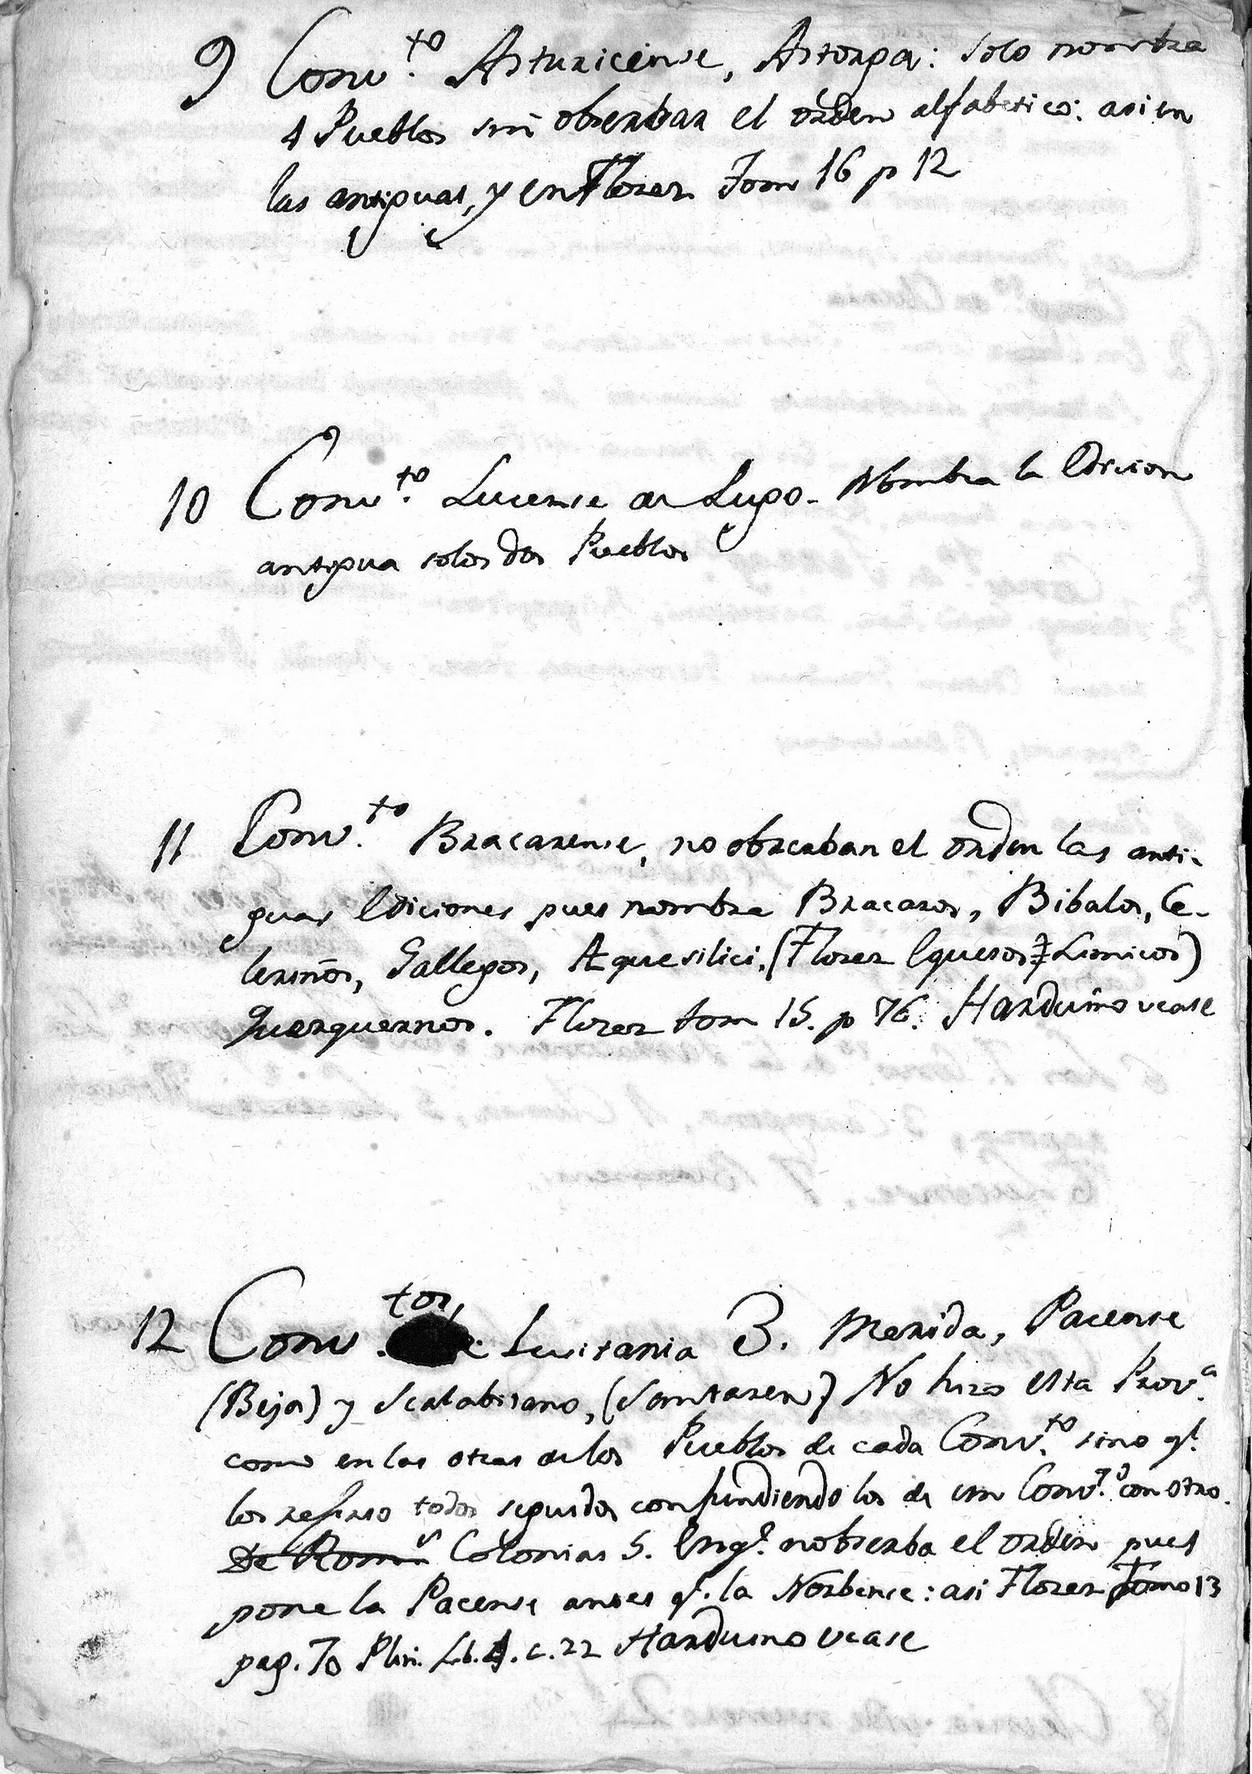 9 Conv.to Asturicense, Astorga: solo nombra
4 Pueblos sin obserbar el orden alfabetico: asi en
las antiguas, y en Florez Tom 16 p 12
10 Conv.to Lucense de Lugo. Nombra la Edicion
antigua solos dos Pueblos
11 Conv.to Bracarense, no obserban el orden las anti-
guas Ediciones pues nombra Bracaros, Bibalos, Ce-
lerinos, Gallegos, AEquesilici, (Florez Equesos Limicos)
Querquernos. Florez tom 15. p 76. Harduino vease
12 Conv.tos Lusitania 3. Merida, Pacense
(Beja) y Scalabitano, (Santaren) No hizo esta Prov.a
como en las otras de los Pueblos de cada Conv.to sino q.e
los refirio todos seguidos confundiendo los de un Conv.to con otro.
De Rom.s Colonias 5. En q.e no obserba el orden pues
pone la Pacense antes q.e la Norbense: asi Florez tomo 13
pag. 70 Plin. Lb. 4. c. 22 Harduino vease